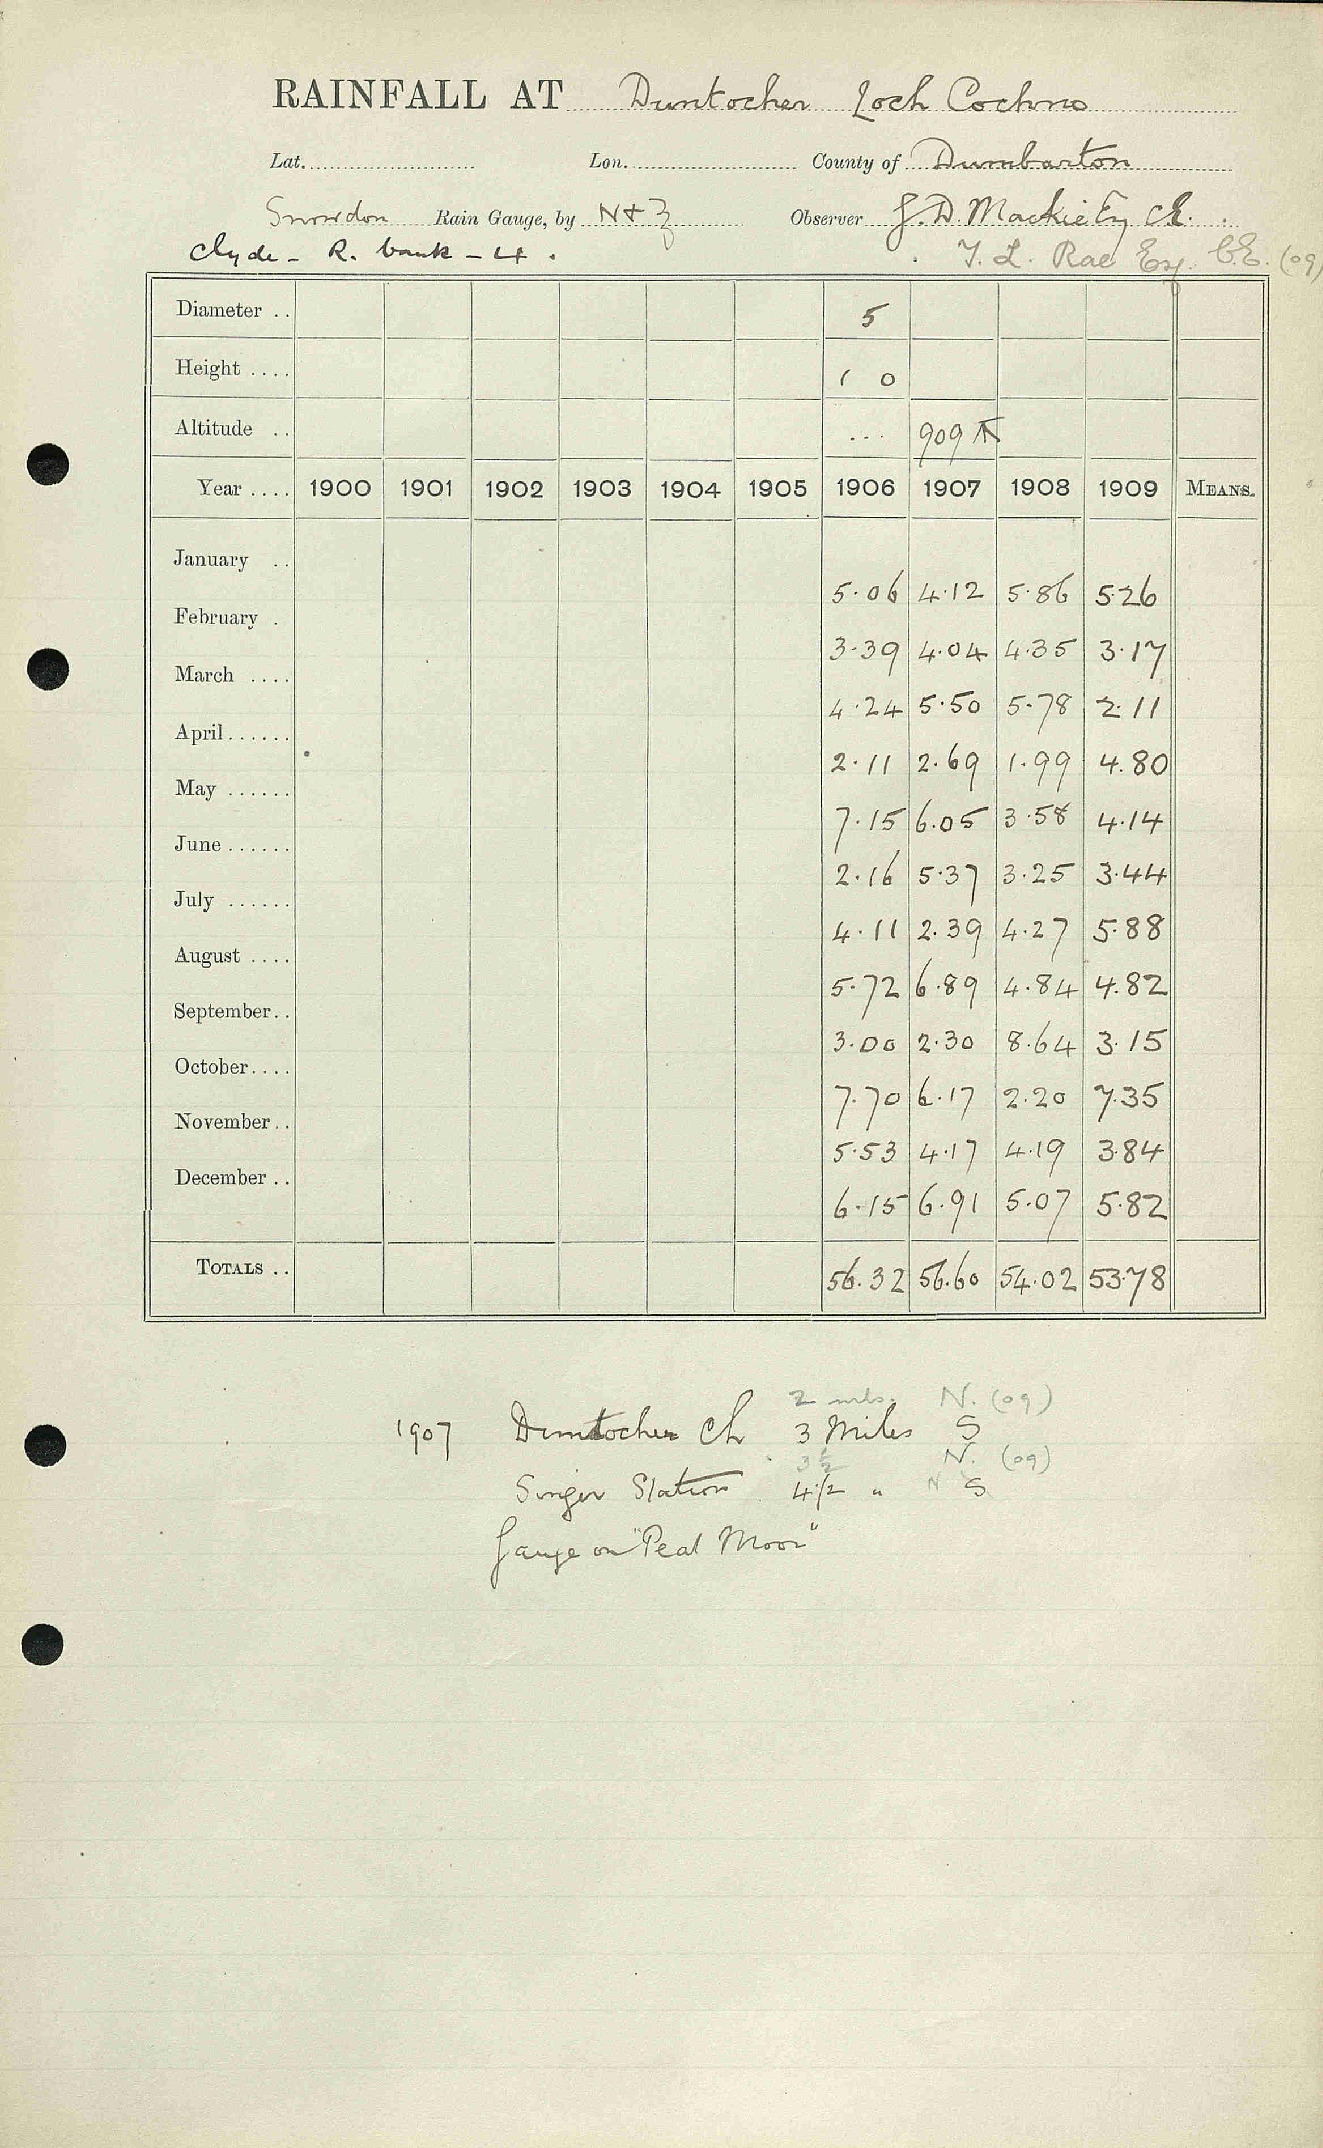 RAINFALL AT Duntocher Loch Cochno
Lat. Lon. County of Dumbarton
Snowdon Rain Gauge, by N+Z Observer J. D. Mackie Esq C.E.
Clyde - R. bank - 4. T. L. Rae Esq. C.E. (09)
Diameter .. 5
Height .... 1 0
Altitude .. ... 909 T
Year .... 1900 1901 1902 1903 1904 1905 1906 1907 1908 1909 MEANS.
January .. 5.06 4.12 5.86 5.26
February . 3.39 4.04 4.35 3.17
March .... 4.24 5.50 5.78 2.11
April...... 2.11 2.69 1.99 4.80
May ...... 7.15 6.05 3.58 4.14
June ...... 2.16 5.37 3.25 3.44
July ...... 4.11 2.39 4.27 5.88
August .... 5.72 6.89 4.84 4.82
September.. 3.00 2.30 8.64 3.15
October.... 7.70 6.17 2.20 7.35
November.. 5.53 4.17 4.19 3.84
December .. 6.15 6.91 5.07 5.82
TOTALS .. 56.32 56.60 54.02 53.78
2 mls. N. (09)
1907 Duntocher Ch 3 Miles S
3½ N. (09)
Singer Station 4½ " N S
Gauge on "Peat Moor"